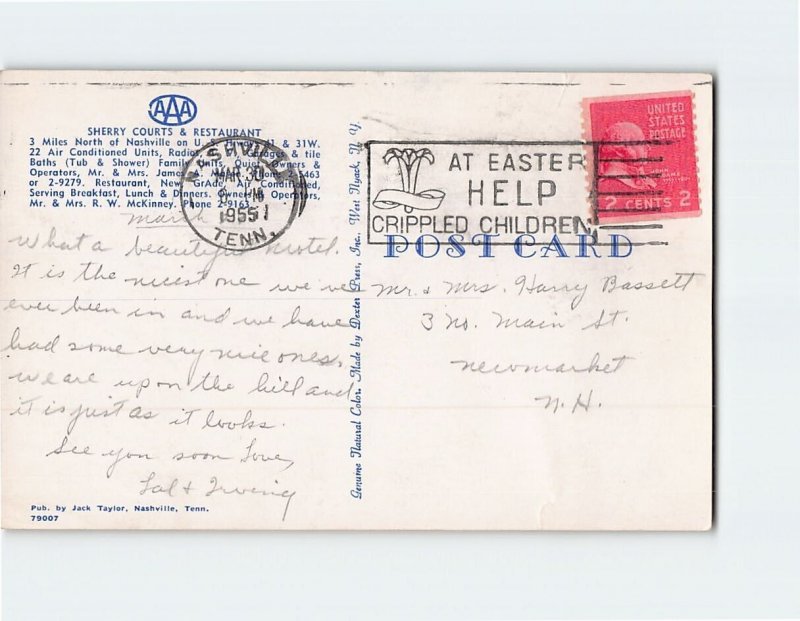 AAA
SHERRY COURTS & RESTAURANT
3 Miles North of Nashville on U. S. & 31W.
22 Air Conditioned Units, & tile
Baths (Tub & Shower) Family Units, Quiet, Owners &
Operators, Mr. & Mrs. James Phone 5463
or 2-9279. Restaurant, New, Grade, Air Conditioned,
Serving Breakfast, Lunch & Dinners. Owners & Operators,
Mr. & Mrs. R. W. McKinney. Phone 2-9163
NASHVILLE
MAR 30
PM
1955
TENN.
AT EASTER
HELP
CRIPPLED CHILDREN
UNITED
STATES
POSTAGE
2 CENTS 2
POST CARD
March
What a beautiful motel.
It is the nicest one we've
ever been in and we have
had some very nice ones.
We are up on the hill and
it is just as it looks.
See you soon Love,
Sal & Irving
Genuine Natural Color. Made by Dexter Press, Inc., West Nyack, N. Y.
Mr. & Mrs. Harry Bassett
3 No. Main St.
Newmarket
N.H.
Pub. by Jack Taylor, Nashville, Tenn.
79007